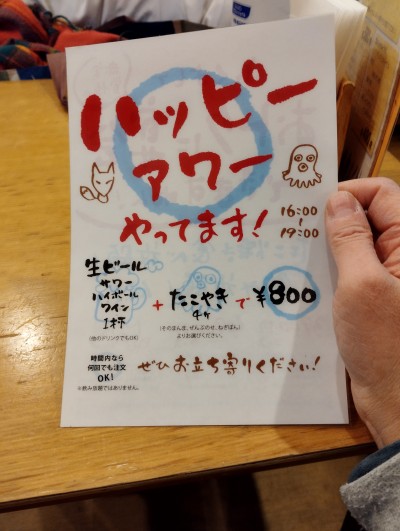 ハッピー
アワー
やってます!
16:00
~
19:00
生ビール
サワー
ハイボール
ワイン
1杯
(他のドリンクでもOK)
+
たこやき
4ケ
で¥800
(そのまんま、ぜんぶのせ、ねぎぽん)
よりお選びください。
時間内なら
何回でも注文
OK!
※飲み放題ではありません。
ぜひお立ち寄りください!